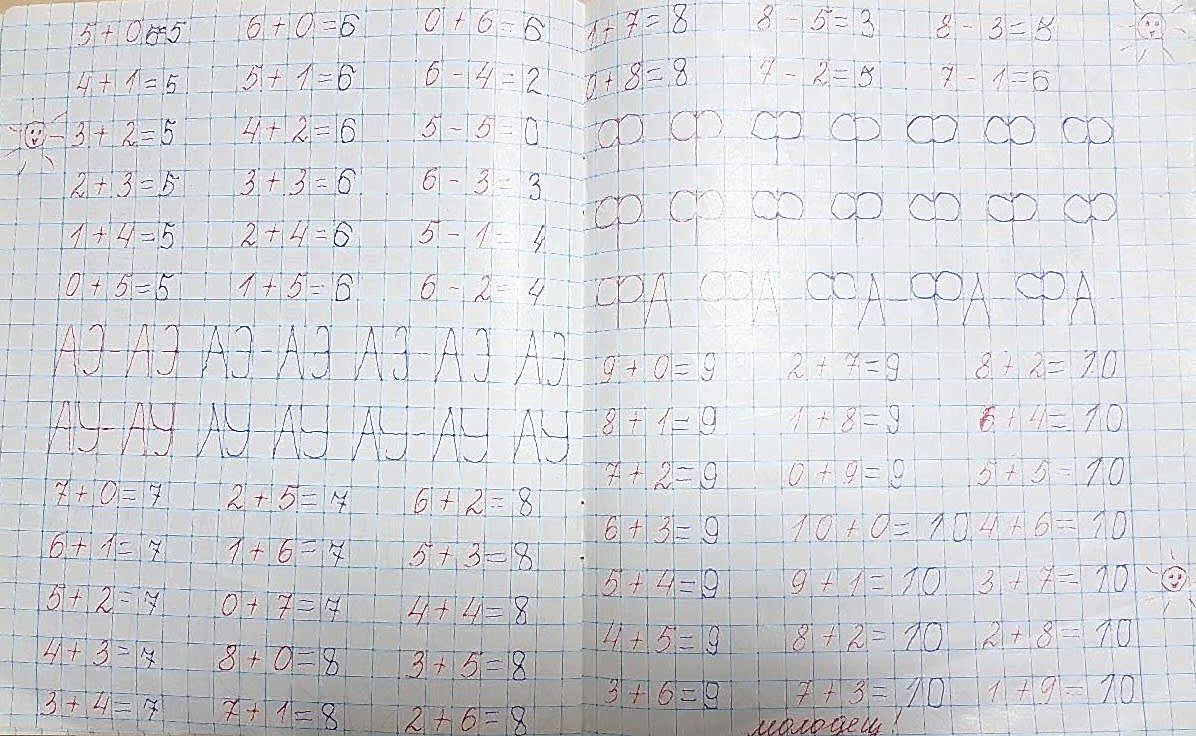 5 + 0 = 5 6 + 0 = 6 0 + 6 = 6
4 + 1 = 5 5 + 1 = 6 6 - 4 = 2
3 + 2 = 5 4 + 2 = 6 5 - 5 = 0
2 + 3 = 5 3 + 3 = 6 6 - 3 = 3
1 + 4 = 5 2 + 4 = 6 5 - 1 = 4
0 + 5 = 5 1 + 5 = 6 6 - 2 = 4
АЭ-АЭ АЭ-АЭ АЭ-АЭ АЭ
АУ-АУ АУ-АУ АУ-АУ АУ
7 + 0 = 7 2 + 5 = 7 6 + 2 = 8
6 + 1 = 7 1 + 6 = 7 5 + 3 = 8
5 + 2 = 7 0 + 7 = 7 4 + 4 = 8
4 + 3 = 7 8 + 0 = 8 3 + 5 = 8
3 + 4 = 7 7 + 1 = 8 2 + 6 = 8
1 + 7 = 8 8 - 5 = 3 8 - 3 = 5
0 + 8 = 8 7 - 2 = 5 7 - 1 = 6
Ф Ф Ф Ф Ф Ф Ф
Ф Ф Ф Ф Ф Ф Ф
ФА-ФА-ФА-ФА-ФА
9 + 0 = 9 2 + 7 = 9 8 + 2 = 10
8 + 1 = 9 1 + 8 = 9 6 + 4 = 10
7 + 2 = 9 0 + 9 = 9 5 + 5 = 10
6 + 3 = 9 10 + 0 = 10 4 + 6 = 10
5 + 4 = 9 9 + 1 = 10 3 + 7 = 10
4 + 5 = 9 8 + 2 = 10 2 + 8 = 10
3 + 6 = 9 7 + 3 = 10 1 + 9 = 10
молодец!